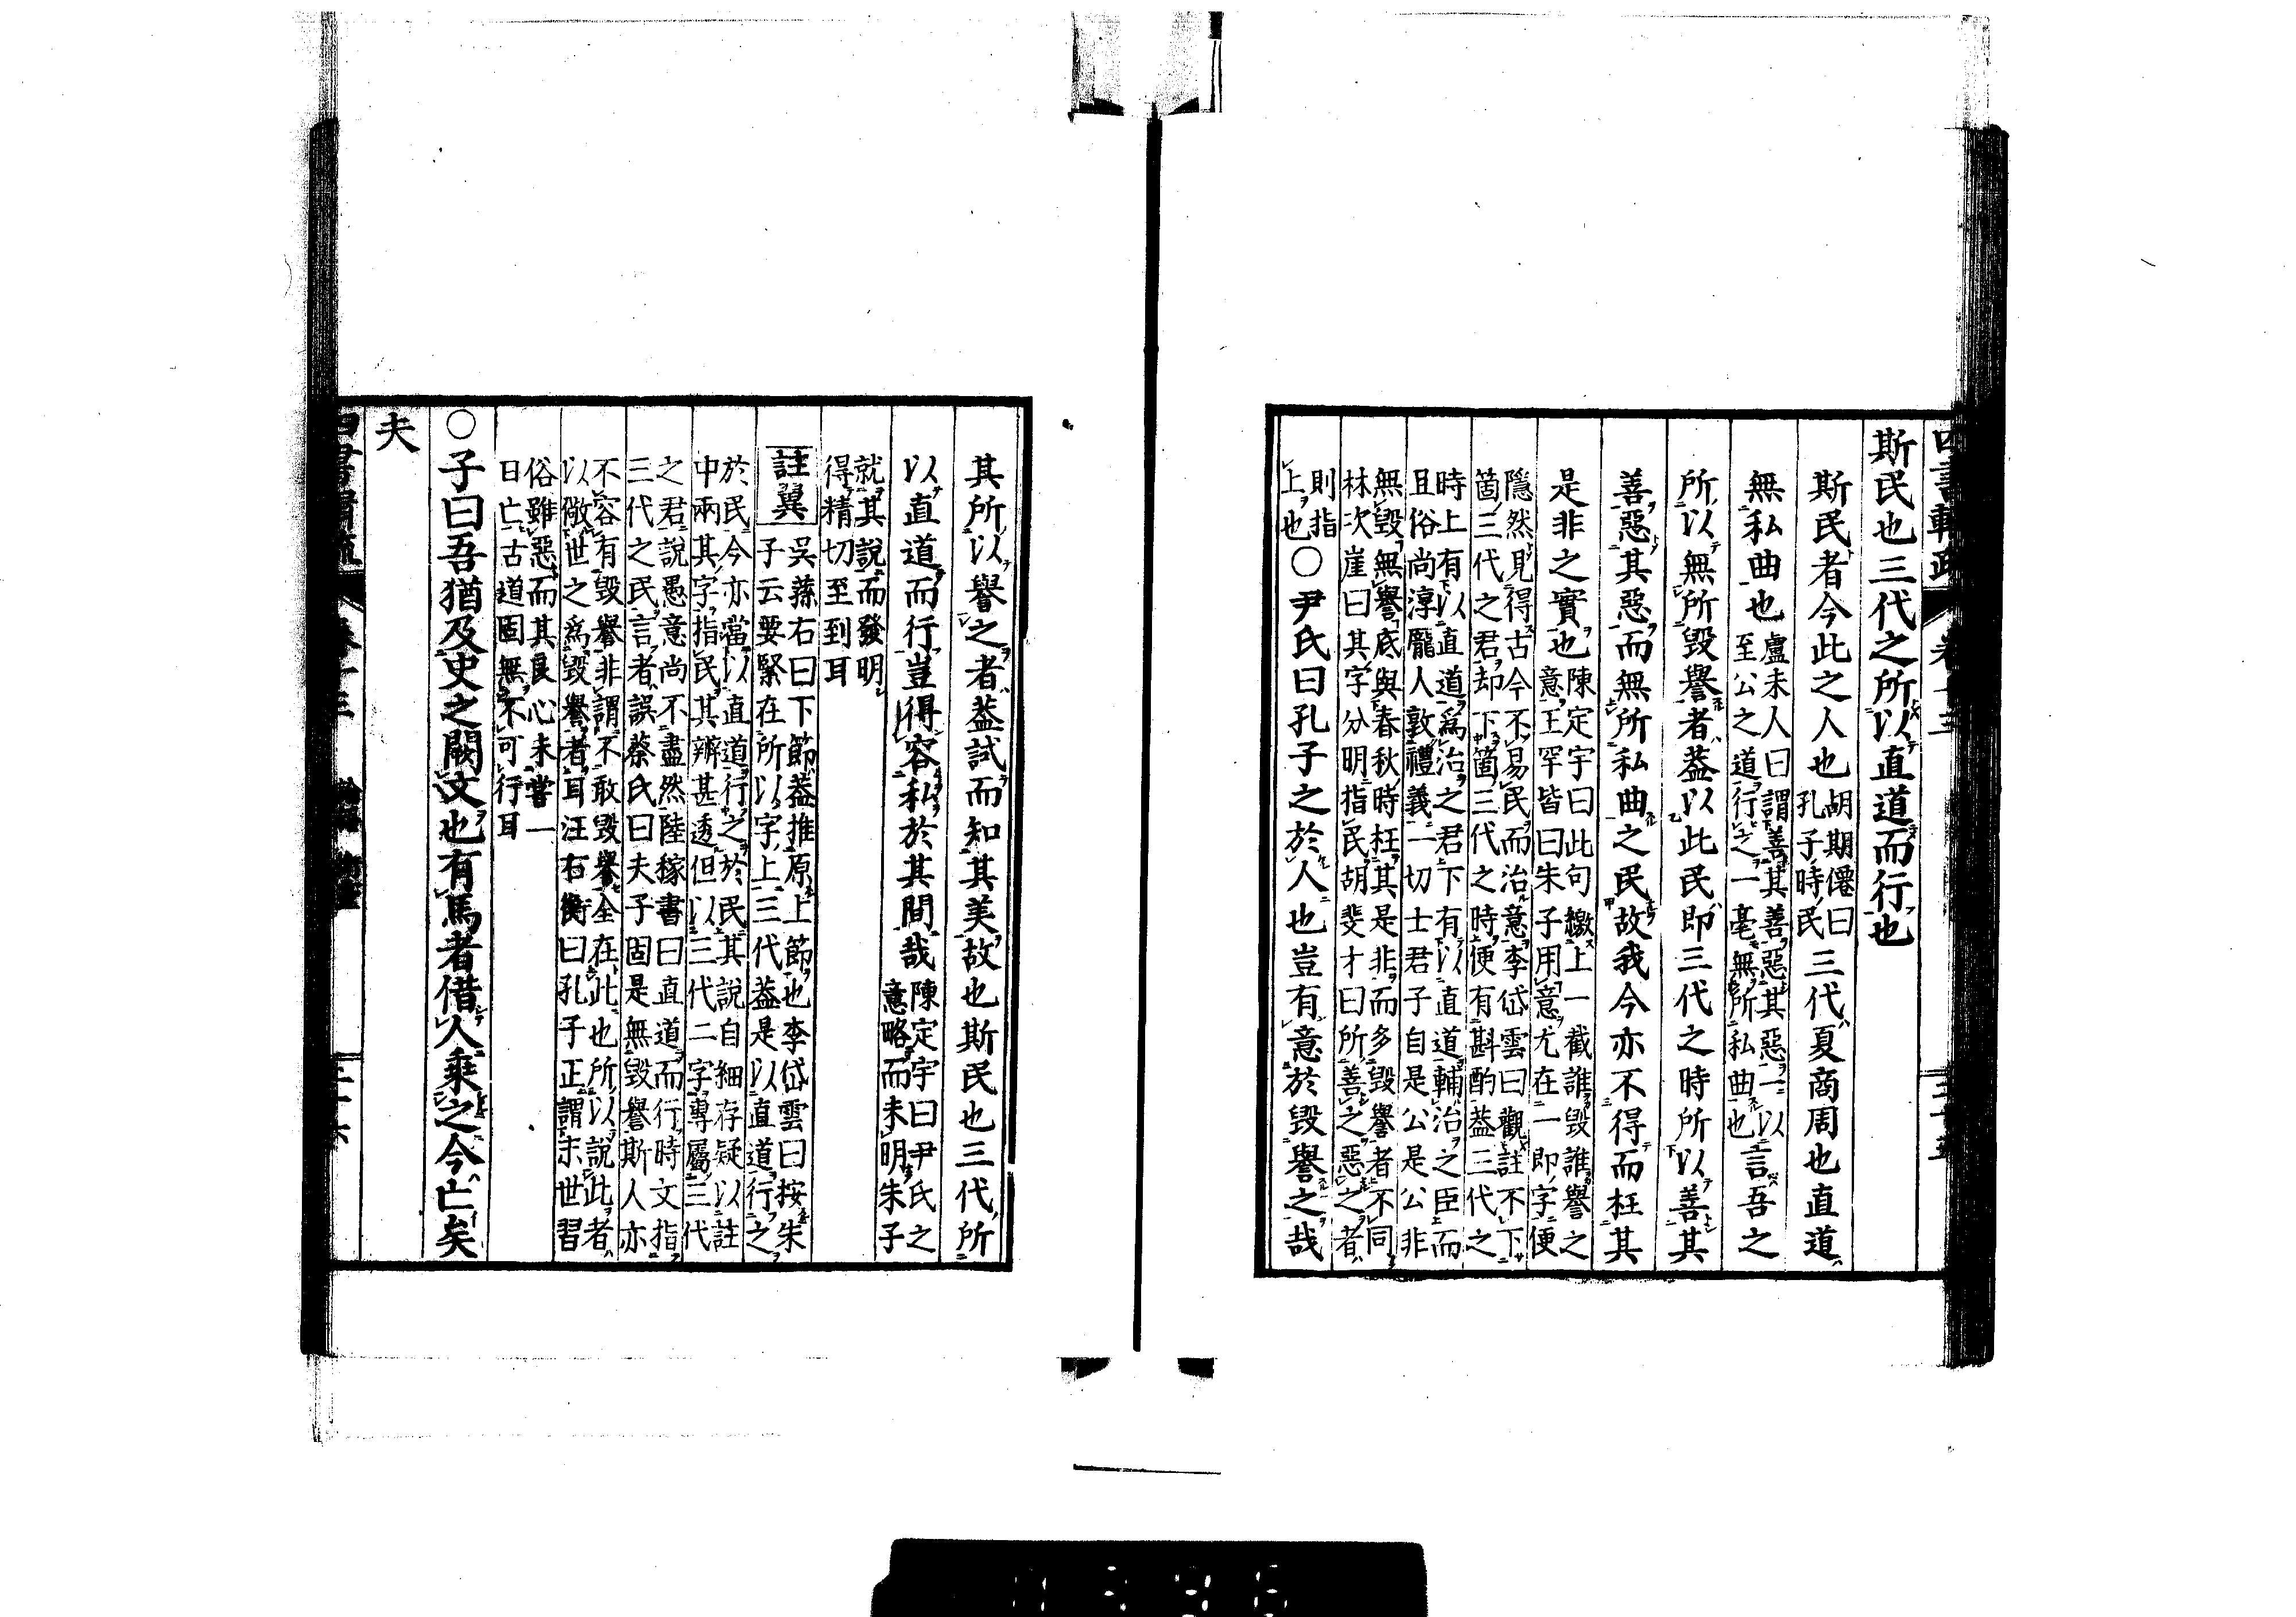 斯民也三代之所以直道而行也
斯民者今此之人也
胡期僊曰
孔子時民
三代夏商周也直道
無私曲也
盧未人曰謂善其善惡其惡一以
至公之道行之一毫無所私曲也
言吾之
所以無所毀譽者葢以此民即三代之時所以善其
善惡其惡而無所私曲之民故我今亦不得而枉其
是非之實也
陳定宇曰此句繳上一截誰毀誰譽之
意王罕皆曰朱子用意尤在一即字便
隱然見得古今不易民而治意李岱雲曰觀註不下
箇三代之君却下箇三代之時便有斟酌葢三代之
時上有以直道爲治之君下有以直道輔治之臣而
且俗尚淳龐人敦禮義一切士君子自是公是公非
無毀無譽底與春秋時枉其是非而多毀譽者不同
林次崖曰其字分明指民胡斐才曰所善之惡之者
則指
上也
○尹氏曰孔子之於人也豈有意於毀譽之哉
其所以譽之者葢試而知其美故也斯民也三代所
以直道而行豈得容私於其間哉
陳定宇曰尹氏之
意略而未明朱子
就其說而發明
得精切至到耳
註翼
吳蓀右曰下節葢推原上節也李岱雲曰按朱
子云要緊在所以字上三代葢是以直道行之
於民今亦當以直道行之於民其說自細存疑以註
中兩其字指民其辨甚透但以三代二字專屬三代
之君說愚意尚不盡然陸稼書曰直道而行時文指
三代之民言者誤蔡氏曰夫子固是無毀譽斯人亦
不容有毀譽非謂不敢毀譽全在此也所以說此者
以儆世之爲毀譽者耳汪右衡曰孔子正謂末世習
俗雖惡而其良心未嘗一
日亡古道固無不可行耳
○子曰吾猶及史之闕文也有馬者借人乘之今亡矣
夫